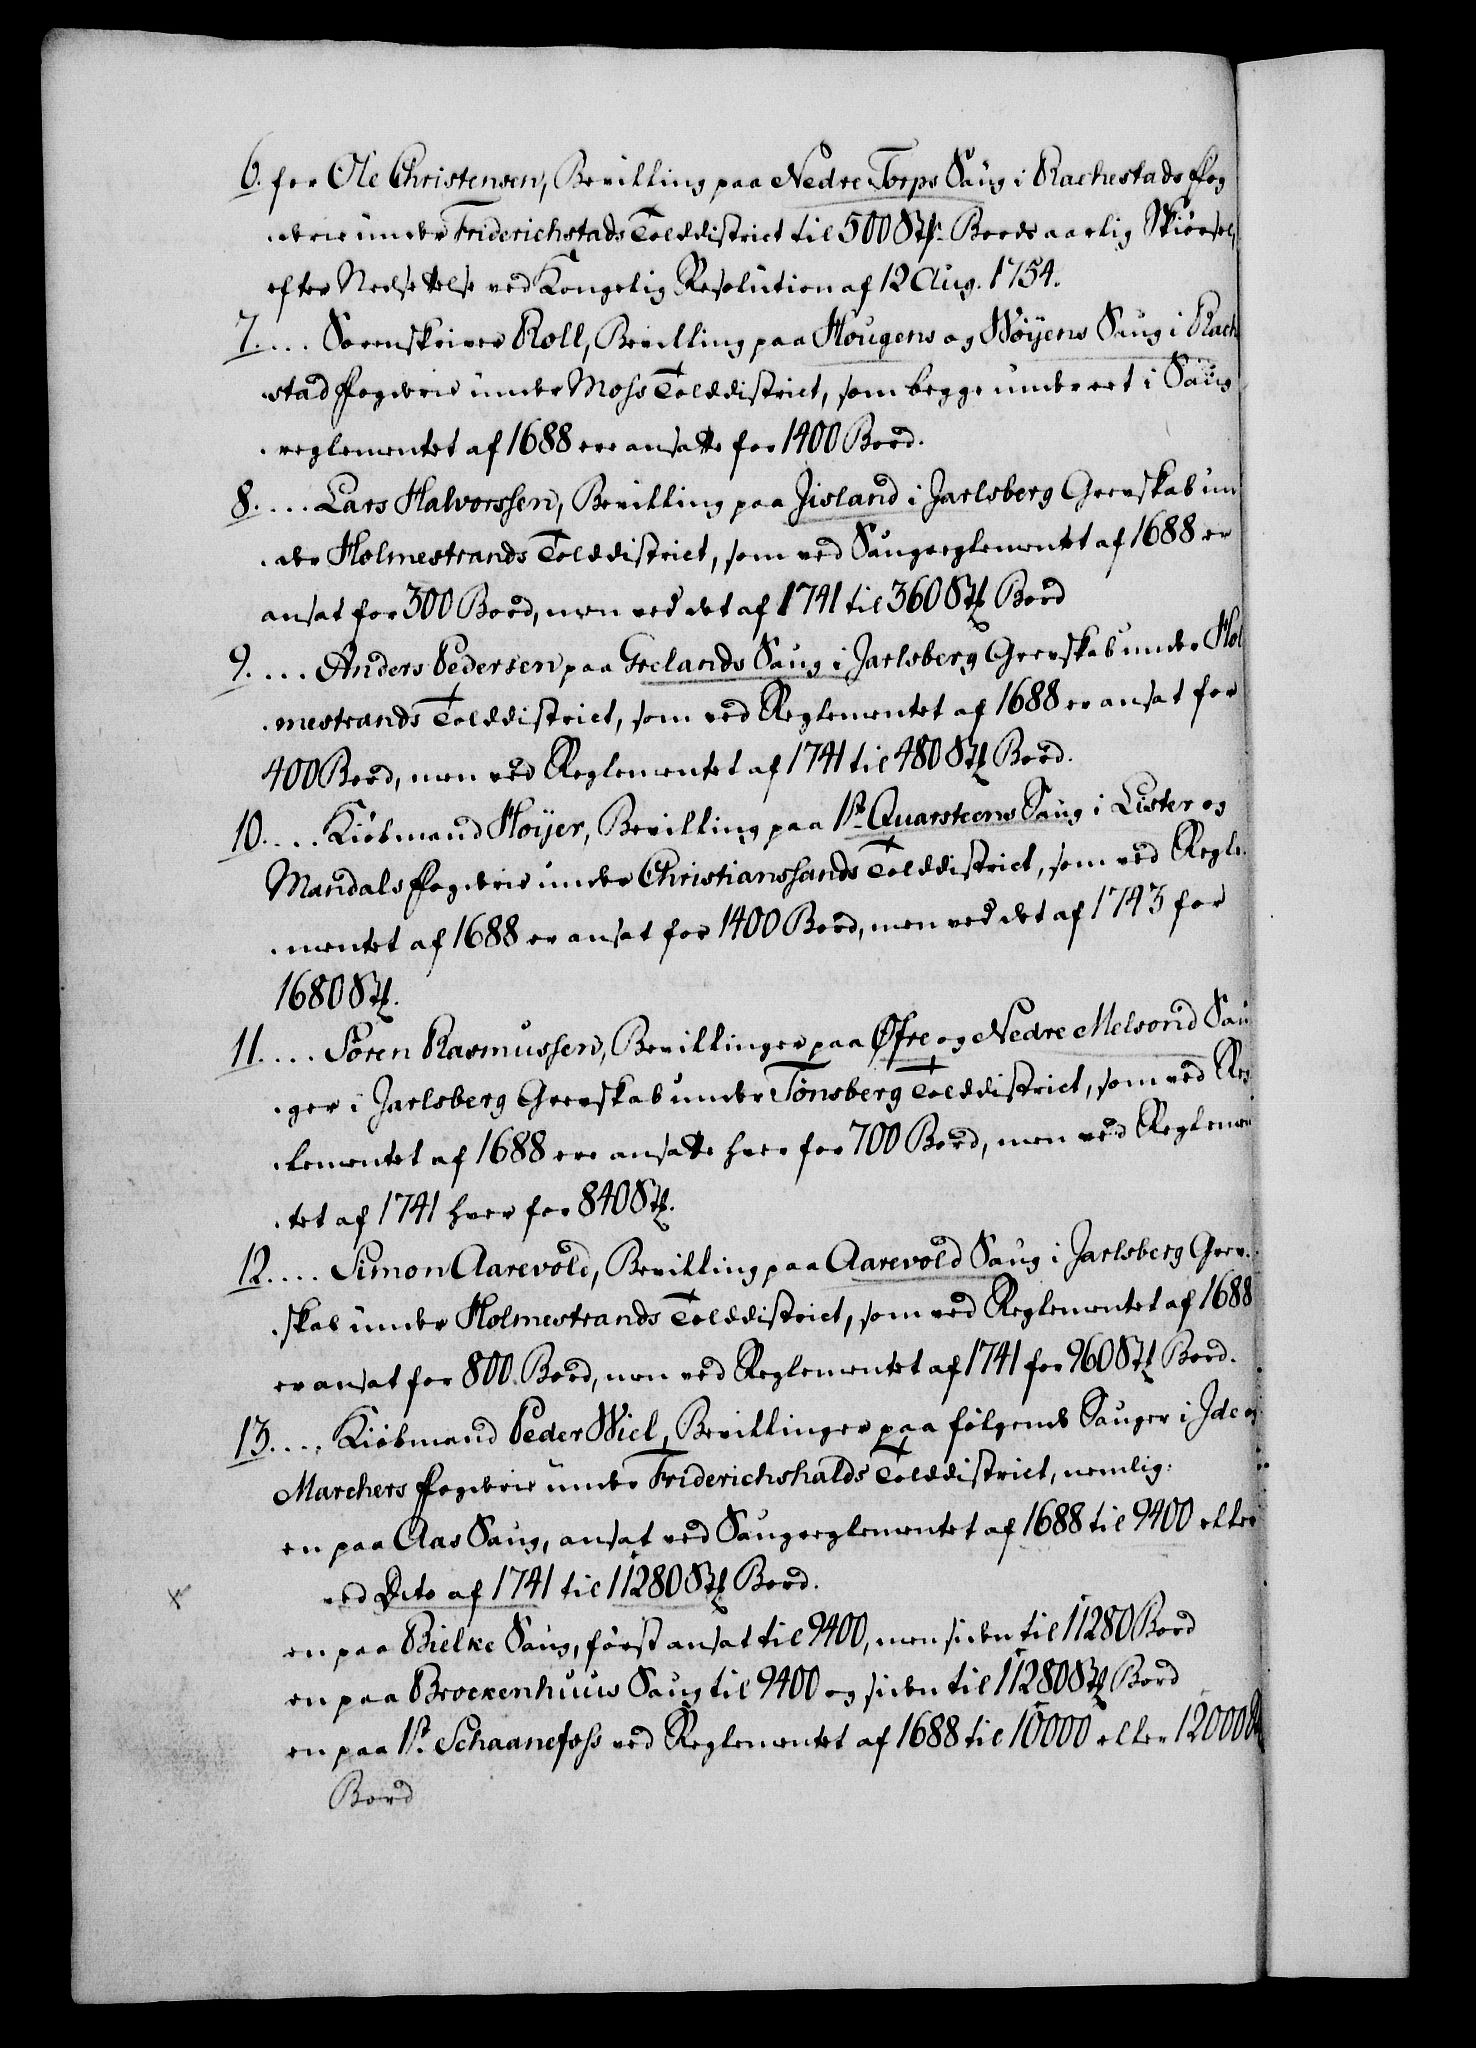 6. for Ole Christensen, Bevilling paa Nedre Torps Saug i Rachestads Fog
derie under Friderichstads Tolddistrict til 500 Stk. Bords aarlig Skiørsel,
efter Nedsettelse ved Kongelig Resolution af 12 Aug. 1754.
7. ... Sorenskriver Roll, Bevilling paa Hougens og Wøyens Saug i Rach
stad Fogderie under Moss Tolddistrict, som begge under eet i Saug
reglementet af 1688 ere ansatte for 1400 Bord.
8. ... Lars Halvorssen, Bevilling paa Jisland i Jarlsberg Grevskab un
der Holmestrands Tolddistrict, som ved Saugreglementet af 1688 er
ansat for 300 Bord, men ved det af 1741 til 360 Stk Bord
9. ... Anders Pedersen paa Grelands Saug i Jarlsberg Grevskab under Hol
mestrands Tolddistrict, som ved Reglementet af 1688 er ansat for
400 Bord, men ved Reglementet af 1741 til 480 Stk Bord.
10. ... Kiøbmand Høyer, Bevilling paa 1st Quarsteens Saug i Lister og
Mandals Fogderie under Christianssands Tolddistrict, som ved Regle
mentet af 1688 er ansat for 1400 Bord, men ved det af 1743 for
1680 Stk.
11. ... Søren Rasmussen, Bevillinger paa Øfre og Nedre Melsond Sau
ger i Jarlsberg Grevskab under Tønsberg Tolddistrict, som ved Reg
lementet af 1688 ere ansatte hver for 700 Bord, men ved Reglemen
tet af 1741 hver for 840 Stk.
12. ... Simon Aarevold, Bevilling paa Aarevold Saug i Jarlsberg Grev
skab under Holmestrands Tolddistrict, som ved Reglementet af 1688
er ansat for 800 Bord, men ved Reglementet af 1741 for 960 Stk Bord.
13. ... Kiøbmand Peder Wiel, Bevillinger paa følgende Sauger i Ide og
Marchers Fogderie under Friderichshalds Tolddistrict, nemlig:
en paa Aas Saug, ansat ved Saugreglementet af 1688 til 9400 eller
ved Dito af 1741 til 11280 Stk Bord.
en paa Bielke Saug, først ansat til 9400, men siden til 11280 Bord
en paa Brockenhuus Saug til 9400 og siden til 11280 Stk Bord
en paa 1st. Schaanefoss ved Reglementet af 1688 til 10000 eller 12000
Bord